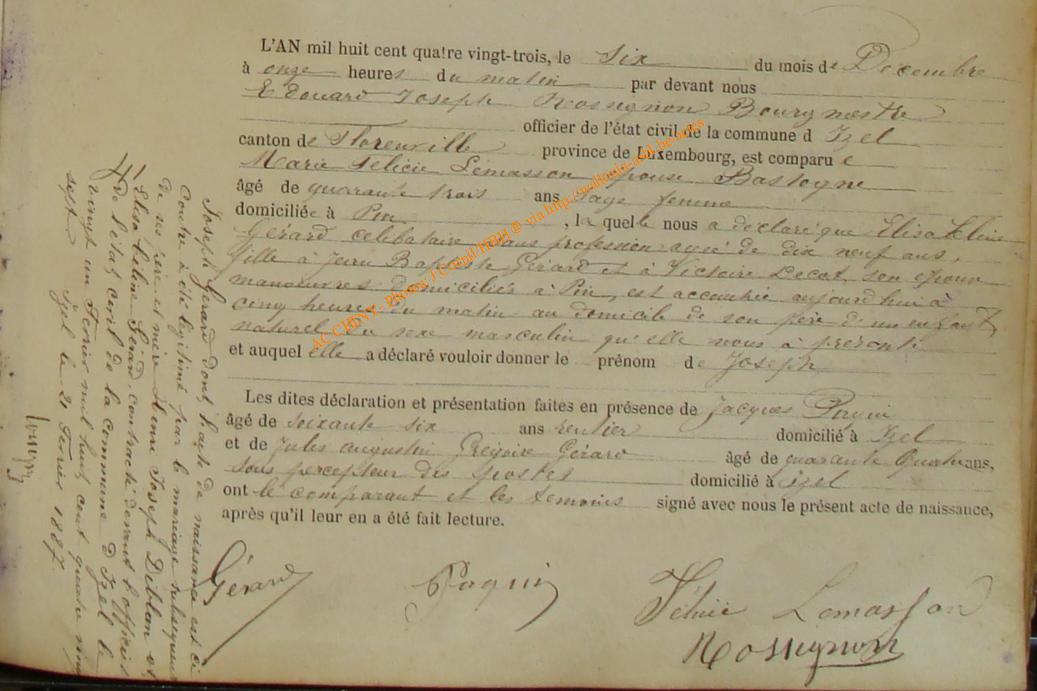 L'AN mil huit cent quatre vingt-trois, le six du mois de Décembre
à onze heures du matin par devant nous
Edouard Joseph Rossignon Bourgmestre
officier de l'état civil de la commune d Izel
canton de Florenville province de Luxembourg, est comparu e
Marie Felicie Lemasson épouse Bastogne
âgé de quarante trois ans sage femme
domiciliée à Pin, la quelle nous a déclaré que Elisa Céline
Gérard celibataire sans profession agée de dix neuf ans,
fille à Jean Baptiste Gérard et à Victoire Lecot, son épouse
manœuvres domiciliés à Pin, est accouchée aujourd'hui à
cinq heures du matin au domicile de son père d'un enfant
naturel du sexe masculin qu'elle nous a présenté
et auquel elle a déclaré vouloir donner le prénom de Joseph
Les dites déclaration et présentation faites en présence de Jacques Poquin
âgé de soixante six ans rentier domicilié à Izel
et de Jules augustin Grégoire Gérard âgé de quarante quatre ans,
sous percepteur des postes domicilié à Izel
ont le comparant et les témoins signé avec nous le présent acte de naissance,
après qu'il leur en a été fait lecture.
Gérard Poquin Félicie Lemasson
Rossignon
Joseph Gérard dont l'acte de naissance est ci
contre a été légitimé par le mariage subséquent
de ses père et mère Henri Joseph Deblon et
Elisa Céline Gérard contracté devant l'officier
de l'état civil de la commune d'Izel le
vingt un Fevrier mil huit cent quatre vingt
sept. Izel le 21 Fevrier 1887.
ACCHINY - Photos J Collin HBH @ via http://wallonia-asbl.be